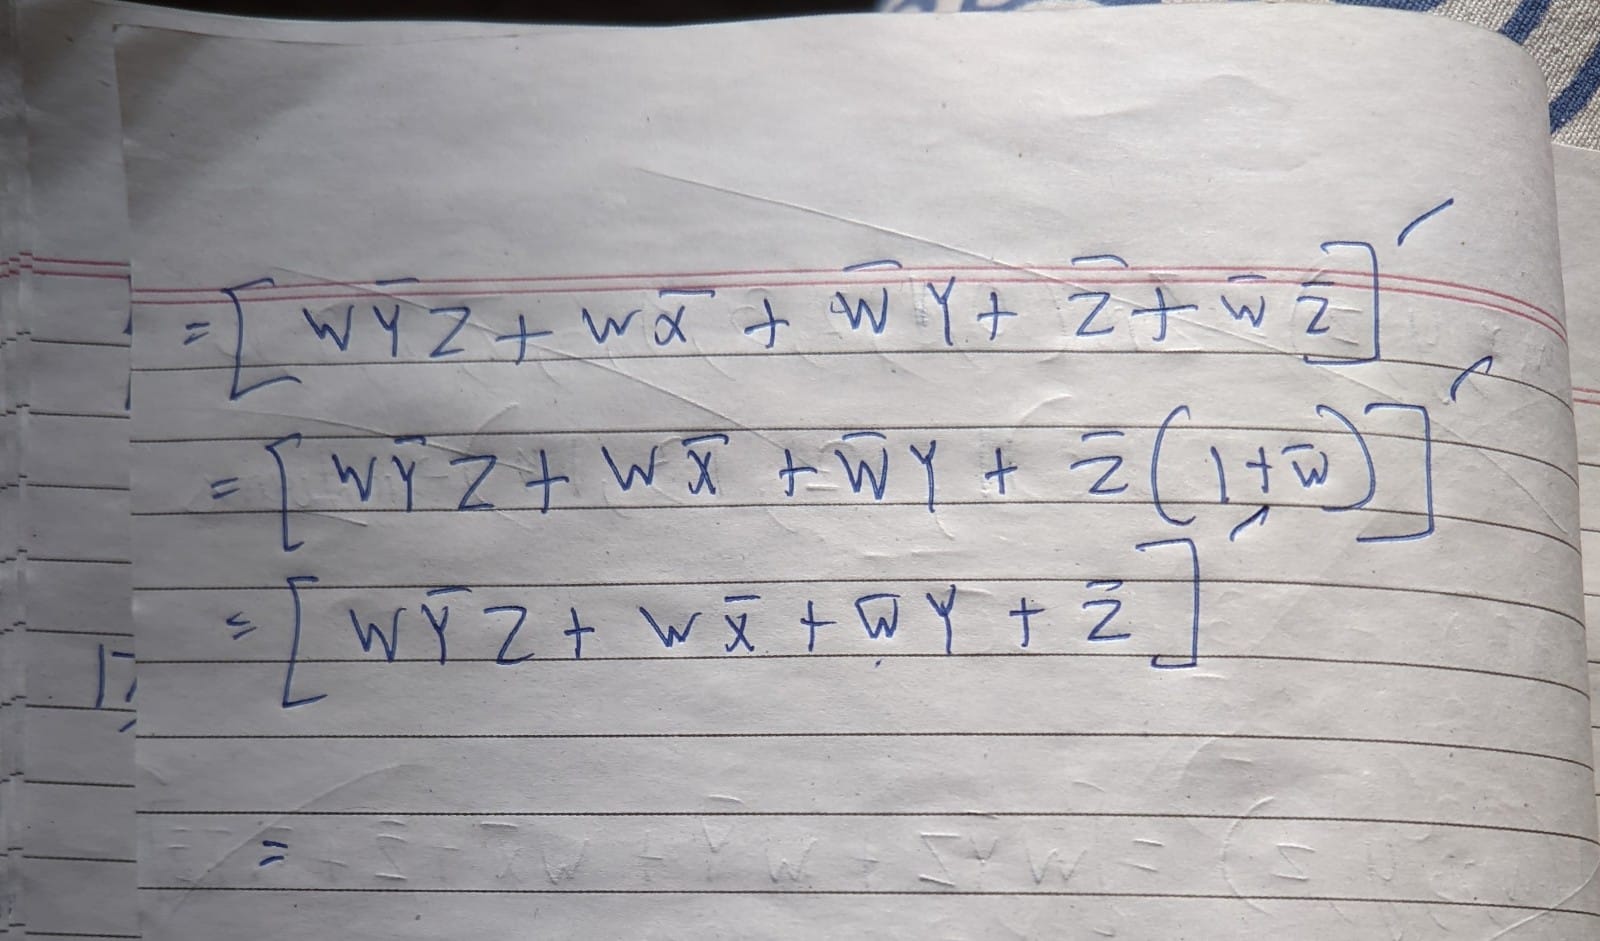 = [ W Y̅ Z + W X̅ + W̅ Y + Z̅ + W̅ Z̅ ]′
= [ W Y̅ Z + W X̅ + W̅ Y + Z̅ ( 1 + W̅ ) ]′
= [ W Y̅ Z + W X̅ + W̅ Y + Z̅ ]′
=